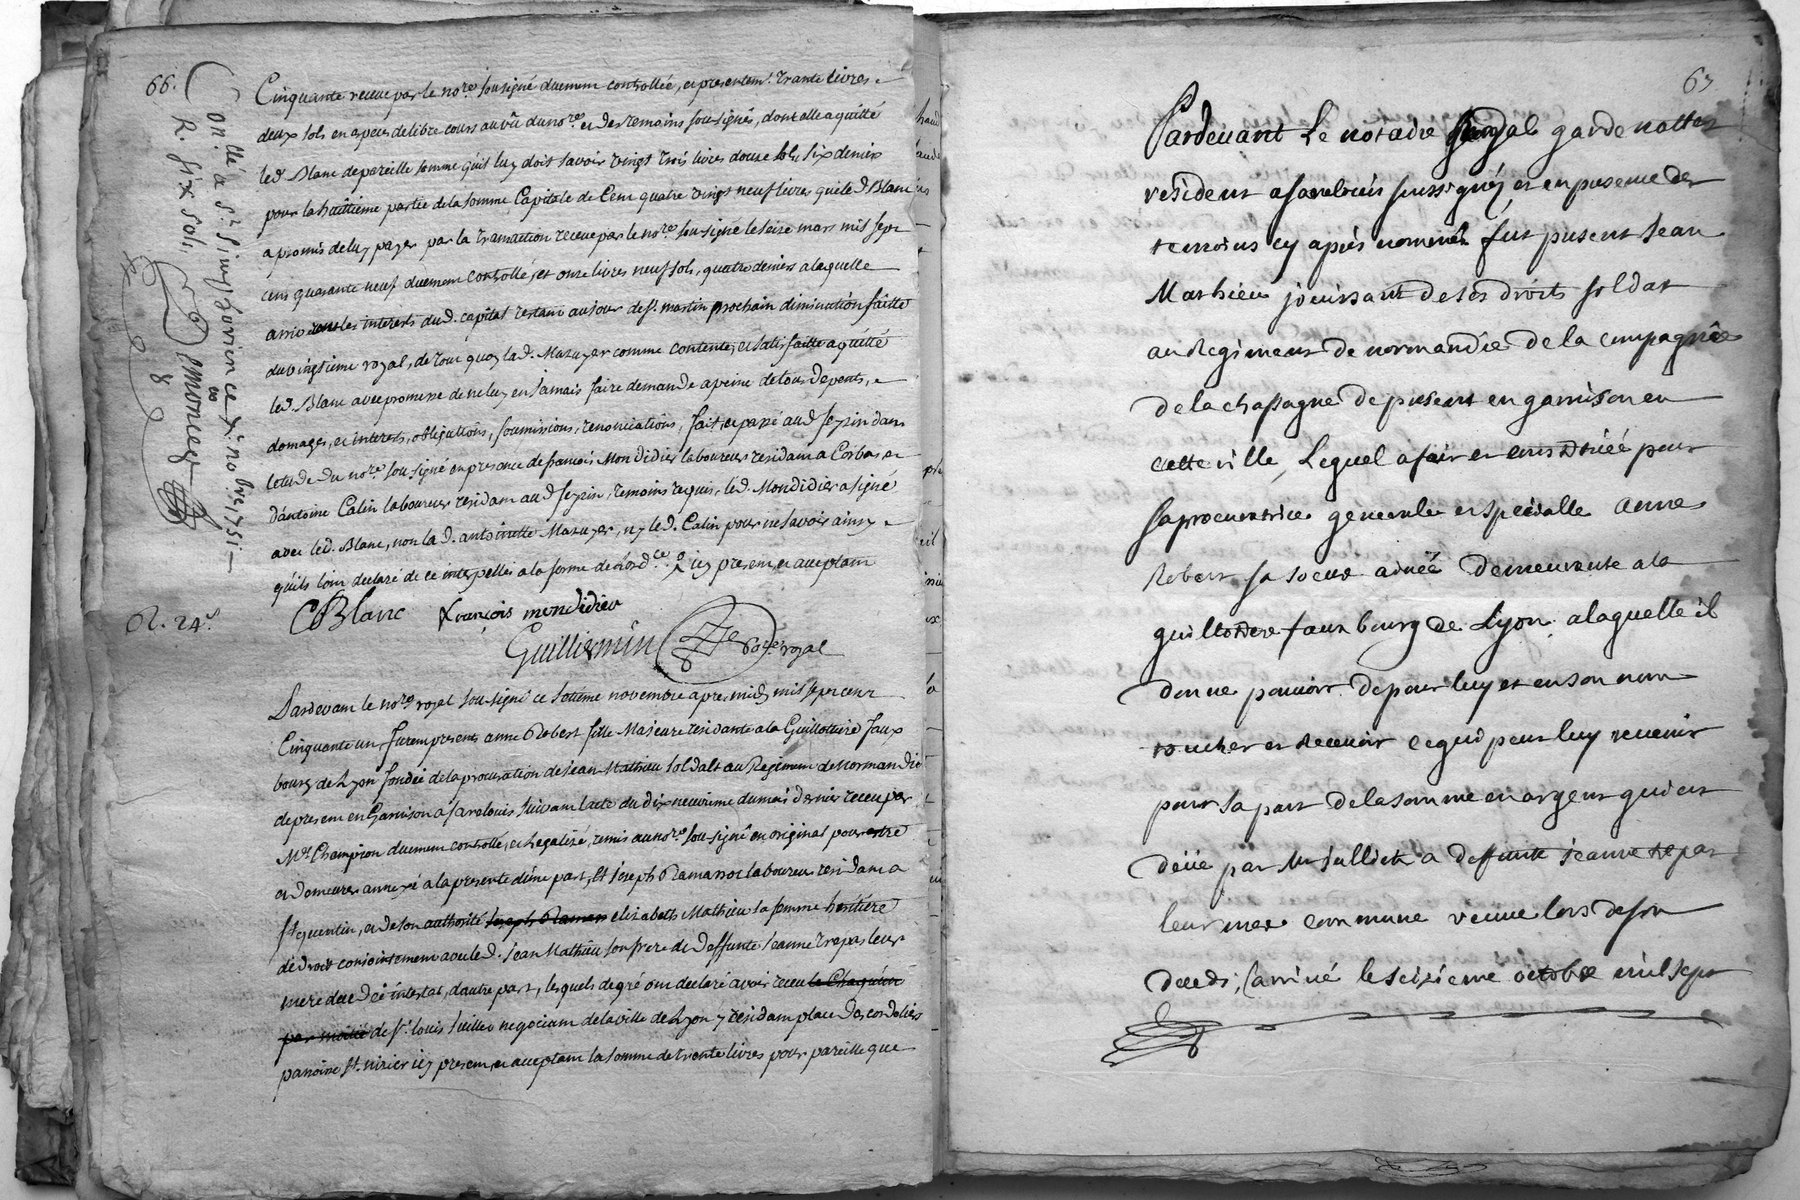 66.
Cinquante receue par le no.re sousigné duement controllée, et presentem.t trante livres
deux sols en especes de libre cours au vû du no.re et des temoins sousignés, dont elle a quitté
led. Blanc de pareille somme qu'il luy doit savoir vingt trois livres douze sols six deniers
pour la huittieme partie de la somme Capitale de Cent quatre vingt neuf livres que led Blanc
a promis de luy payer par la transaction receue par le no.re sousigné le seize mars mil sept
cens quarante neuf duement controllé, et onze livres neuf sols, quatre deniers a laquelle
arrive les interests dud. capital restant au jour de s.t martin prochain diminution faitte
du vingtieme royal, de tout quoy lad. Mazuyer comme contente, et satisfaitte a quitté
led. Blanc avec promesse de ne luy en jamais faire demande a peine de tous depents,
domages, et interests, obligations, soumissions, renonciations, fait, et passé aud seyzin dans
letude du no.re sousigné en presence de francois Mondidier laboureur residant a Corbas et
d'antoine Catin laboureur residant aud seyzin, temoins requis, led. Mondidier a signé
avec led. Blanc, non lad. antoinette Mazuyer, ny led. Catin pour ne savoir ainsy
qu'ils l'ont declaré de ce interpellés a la forme de l'ord.ce icy present, et acceptant
CBlanc francois mondidier
Guilliermin no.re royal
Con.llé a S.t Simphorien ce X.e no.bre 1751
R. six sols
R. 24.s
Pardevant le no.re royal sousigné ce septieme novembre apres midy mil sept cent
Cinquante un, furent presents anne Robert fille Majeure residante a la Guillottiere faux
bourg de Lyon fondée de la procuration de Jean Mathieu soldalt au Regiment de Normandie
de present en Garnison a Sarelouis suivant l'acte du dix neuvieme du mois dernier receu par
M.e Champion duement controllé, et legalizé, remis au no.re sousigné en original pour estre
et demeurer annexé a la presente d'une part, Et joseph Ramassot laboureur residant a
s.t quentin, et de son authorité Joseph Ramas elizabeth Mathieu sa femme heritiere
de droit conjointement avec led. Jean Mathieu son frere de deffunte Jeanne trepas leur
mere decedée intestat, d'autre part, lesquels de gré ont declaré avoir receu le Chaqu'un
par moitié de s.r louis Juillet negociant de la ville de Lyon y residant place des cordeliers
paroisse s.t nizier icy present, et acceptant la somme de trente livres pour pareille que
67
Pardevant Le notaire Royal garde nottes
resident a Sarelouis soussigné, et en presence des
temoins cy après nommés fut present Jean
Mathieu jouissant de ses droits soldat
au Regiment de normandie de la compagnie
de la chassagne de present en garnison en
cette ville, Lequel a fait et constitüée pour
sa procuratrice generale et spécialle anne
Robert sa soeur ainée demeurante a la
guillottiere faux bourg de Lyon, a laquelle il
donne pouvoir de pour luy et en son nom
toucher et recevoir ce qui peut luy revenir
pour sa part de la somme en argent qui est
deüe par Mr Jullictz a deffunte jeanne trepas
leur mere commune veuve lors de son
decedz, arrivé le seizieme octobre mil sept